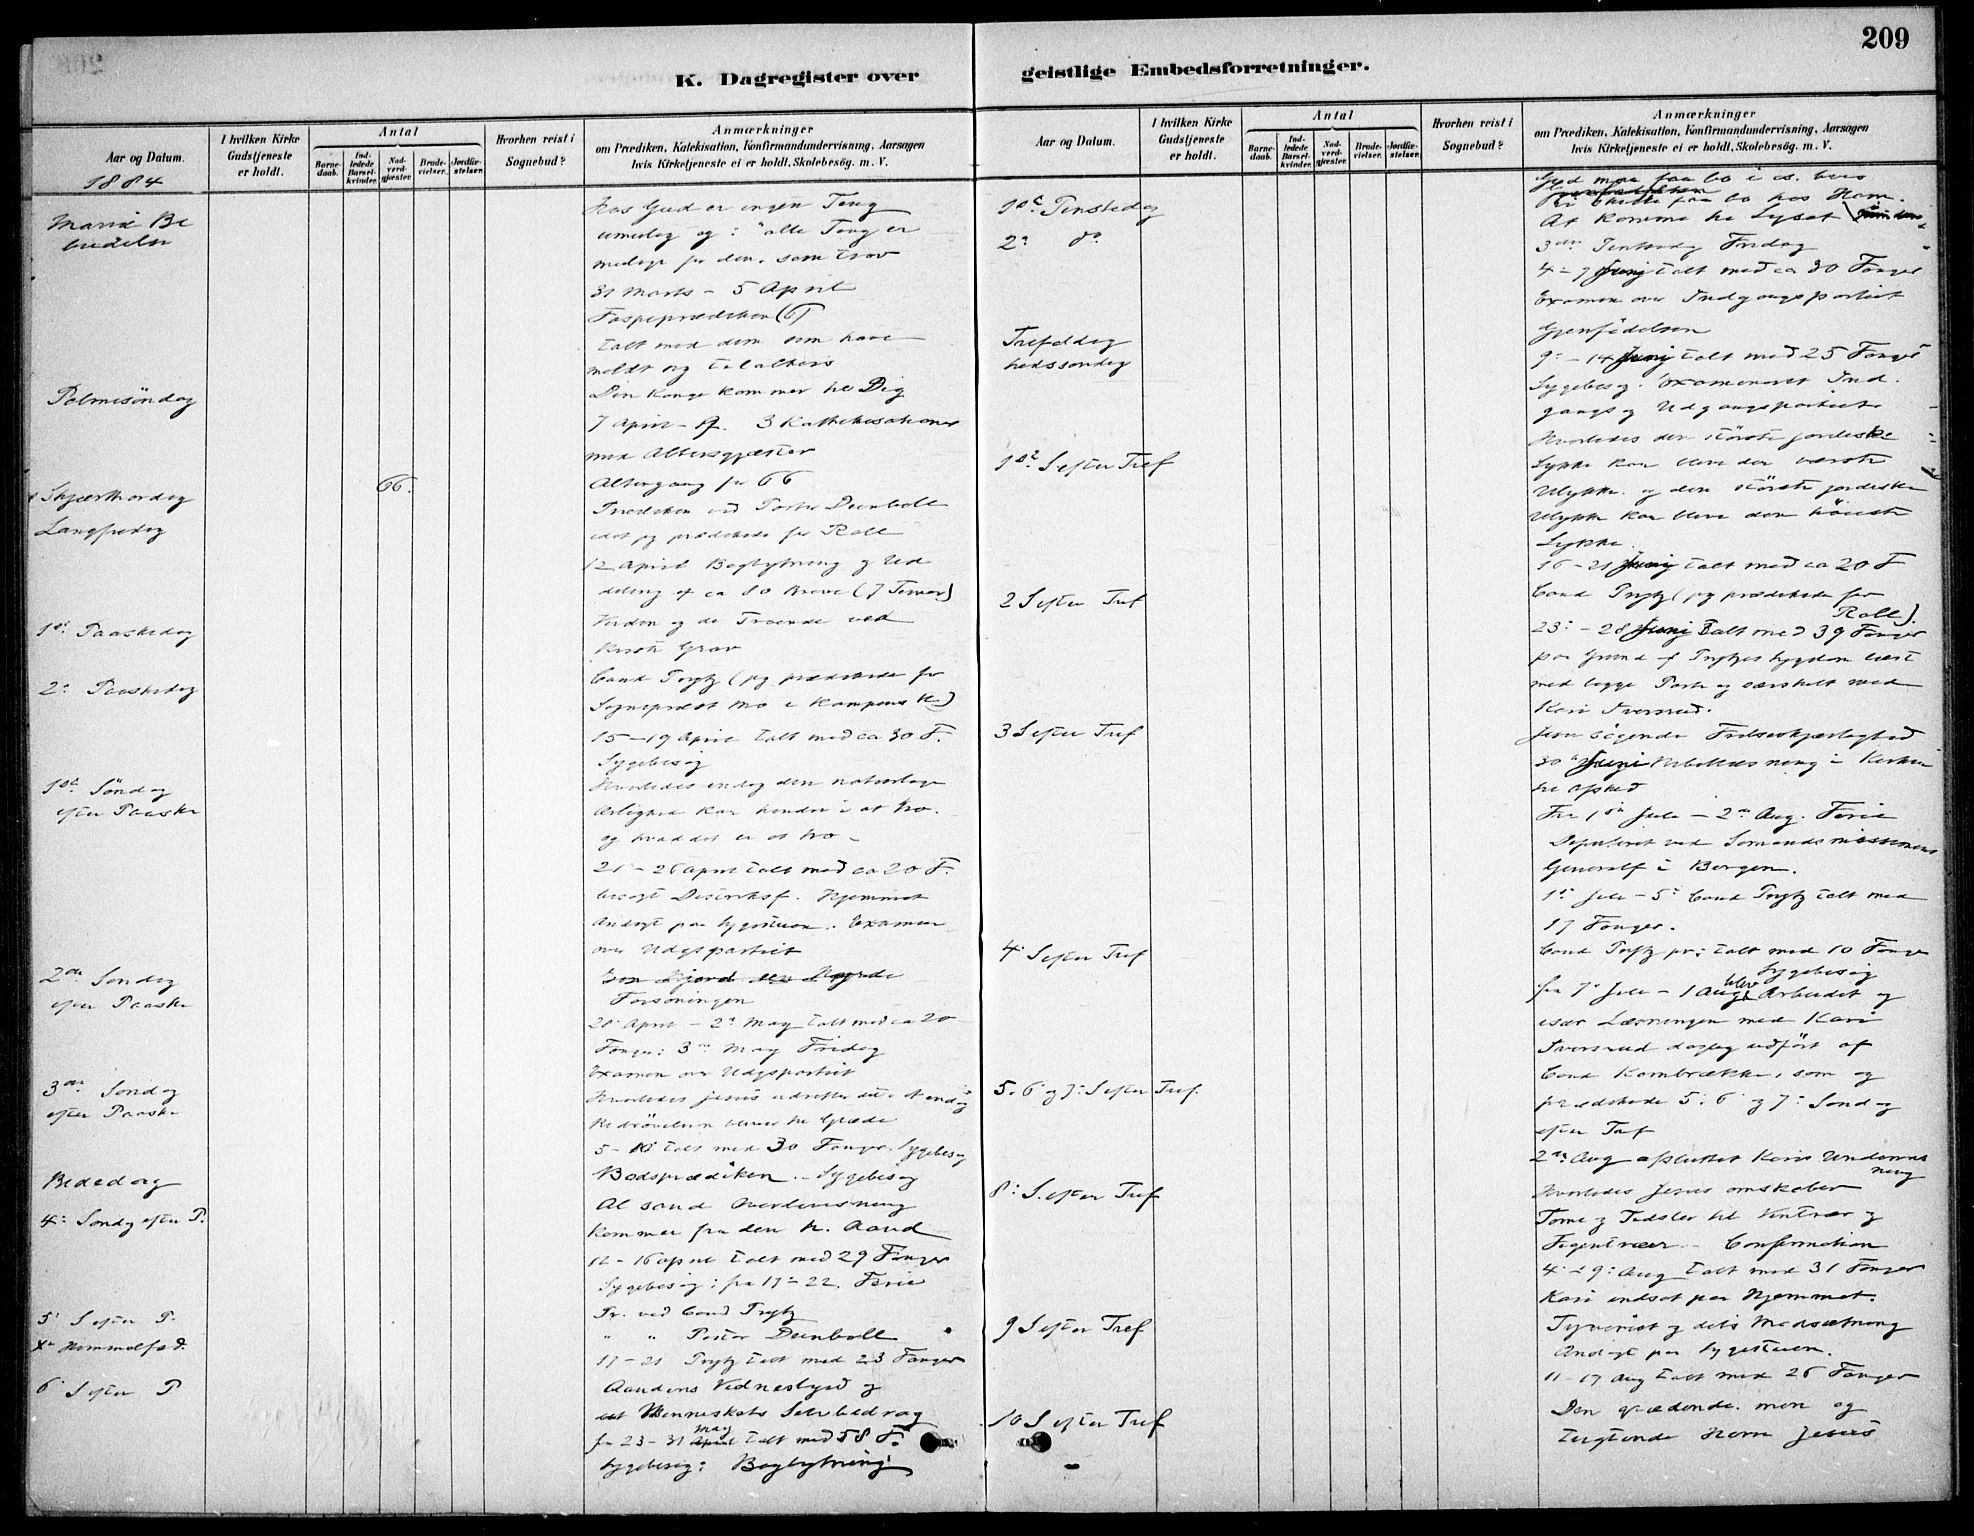 209
K. Dagregister over
geistlige Embedsforretninger.
Aar og Datum.
I hvilken Kirke Gudstjeneste er holdt.
Antal
Barnedaab.
Indledede Barselkvinder.
Nadverdgjæster.
Brudevielser.
Jordfæstelser.
Hvorhen reist i Sognebud?
Anmærkninger
om Prædiken, Katekisation, Konfirmandundervisning, Aarsagen
hvis Kirketjeneste ei er holdt, Skolebesøg. m. V.
1884
Mariæ Be
budelse
Hos Gud er ingen Ting
umulig og: "alle Ting er
mulige for den, som tror
31 Marts - 5 April
Fasteprædiken (6)
talt med dem som have
meldt sig til alters
Palmesöndag
Din Konge kommer til Dig
7 April - 9. 3 Kathekisationer
med Altersgjæster
Skjærthorsdag
66.
Altergang for 66
Langfredag
Prædiken ved Pastor Dunboll
idet jeg prædikede for Roll
12 April Bogbytning og Ud
deling af ca 80 Breve (7 Timer)
1ste Paaskedag
Verden og de Troende ved
Kristi Grav
2n Paaskedag
Cand Trytz (jeg prædikede for
Sognepræst Mo i Kampens K.)
15-19 April talt med ca 30 F.
Sygebesög
1ste Söndag
efter Paaske
Hvorledes endog den naturlige
Ærlighed kan hindre i at tro.
og hvad det er at tro -
21 - 26 April talt med ca 20 F.
besögt Distriktsf. Hjemmet
Andagt paa Sygestuen. Examen
over Udgspartiet
2den Söndag
efter Paaske
Forsoningen
28 April - 2n May talt med ca 20
Fanger: 3n May Fridag
Examen over Udgspartiet
3die Söndag
efter Paaske
Hvorledes Jesus udretter det at endog
Bedrövelsen bliver til Glæde
5-10 talt med 30 Fanger. Sygebesög
Bededag
Bodsprædiken. - Sygebesög
4n Söndg efter P.
Al sand Overbevisning
kommer fra den h. Aand
12-16 April talt med 29 Fanger
Sygebesög: fra 17-22. Ferie
5 S efter P.
Pr. ved Cand Trytz
Kr Himmelfd.
" " Pastor Dunboll
17-21 Trytz talt med 23 Fanger
6 S efter P
Aandens Vidnesbyrd og
Menneskets Selvbedrag
fra 23-31 May talt med 58 F.
Sygebesög: Bogbytning
Aar og Datum.
I hvilken Kirke Gudstjeneste er holdt.
Antal
Barnedaab.
Indledede Barselkvinder.
Nadverdgjæster.
Brudevielser.
Jordfæstelser.
Hvorhen reist i Sognebud?
Anmærkninger
om Prædiken, Katekisation, Konfirmandundervisning, Aarsagen
hvis Kirketjeneste ei er holdt, Skolebesög. m. V.
1ste Pinsedag
Gud maa faa bo i os, hvis
vi skulle faa bo hos Ham.
2n do
At komme til Lyset
3die Pintsedg Fridag
4-7 Juni talt med ca 30 Fanger
Examen over Indgangspartiet
Trefoldig
hedssöndag
Gjenfödelsen
9-14 Juni talt med 25 Fanger
Sygebesög. Examineret Ind.
gangs og Udgangspartiet
1ste S efter Tref
Hvorledes den störste jordiske
Lykke kan blive den værste
Ulykke og den störste jordiske
Ulykke kan blive den höieste
Lykke.
16-21 Juni talt med ca 20 F
2 S efter Tref
Cand Trytz (jeg prædikede for
Roll).
23 - 28 Juni Talt med 39 Fanger
paa Grund af Trytzes Sygdom læst
med begge Parter og særskilt med
Kari Iversrud.
3 S efter Tref
Jesu sögende Frelserkjærlighed
30 Juni Bibellæsning i Kirken
til Afsked
Fra 1ste Juli - 2n Aug. Ferie
Deputeret ved Sömandsmissionens
Generalf i Bergen.
1ste Juli - 5 Cand Trytz talt med
17 Fanger.
4 S efter Tref
Cand Trytz pr: talt med 10 Fange
Sygebesög
fra 7 Juli - 1 Aug blev Arbeidet og
især Læsningen med Kari
Iversrud daglig udfört af
Cand Kornbrække, som og
5. 6 og 7 S efter Tref.
prædikede 5. 6 og 7 Söndag
efter Tref
2n Aug afsluttet Karis Undervis
ning
8 S. efter Tref
Hvorledes Jesus omskaber
Torne og Tidsler til Vintræer og
Figentræer. - Confirmation
4 - 9 Aug talt med 31 Fanger
Kari indsat paa Hjemmet.
9 S efter Tref
Tyveriet og dets Modsætning
Andagt paa Sygestuen.
11-17 Aug talt med 26 Fanger
10 S efter Tref
Den grædende men og
tugtende Herre Jesus